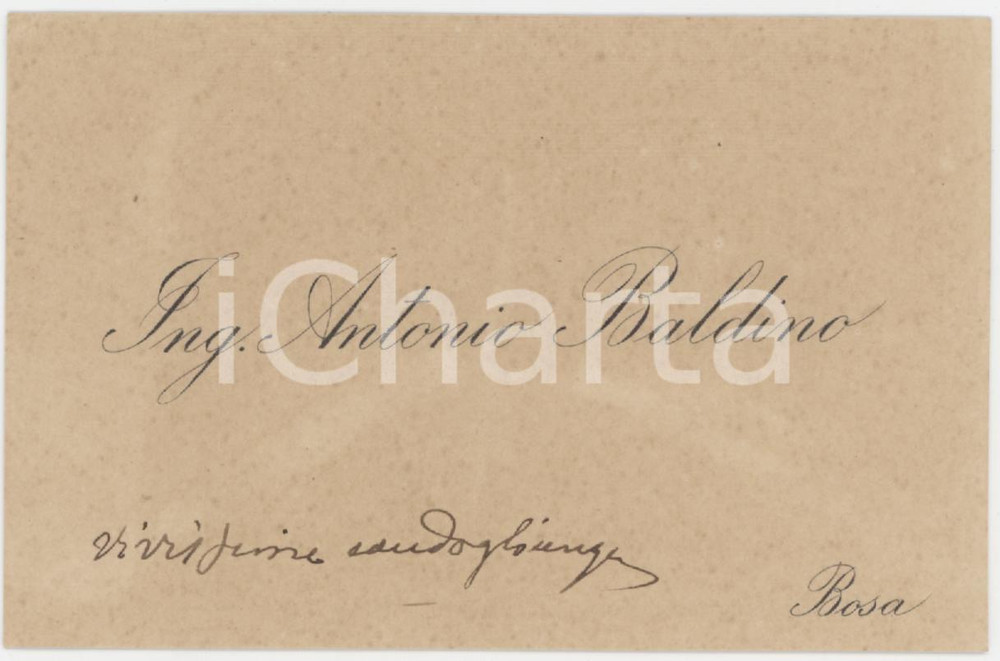 Ing. Antonio Baldino
iCharta
vivissime condoglianze
Bosa